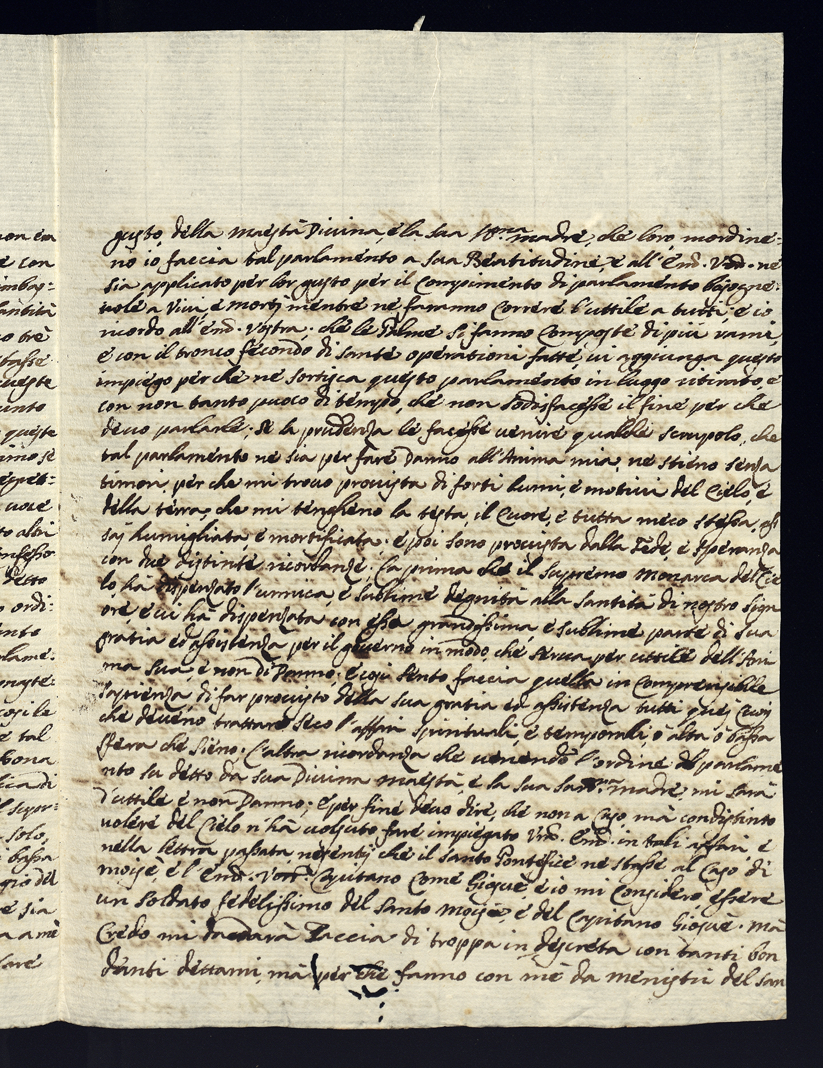 gusto della Maestà Divina, e la sua SS.ma madre, che loro, m'ordine=
no io faccia tal parlamento a sua Beatitudine, e all'Emd. Vrd. ne
sia applicato per lor gusto per il compimento di parlamento bisogne=
vole a Vivi, e morti mentre ne faranno correre l'uttile a tutti, e io
ricordo all'emd. Vostra, che le Palme si fanno composte di più rami,
e con il tronco fecondo di sante operationi fatte, vi aggiunga questo
impiego per che ne sortisca questo parlamento in luogo ritirato, e
con non tanto puoco di tempo, che non sodisfacesse il fine per che
devo parlare, se la prudenza le facesse venire qualche scrupolo, che
tal parlamento ne sia per fare Danno all'Anima mia, ne stieno senza
timori, per che mi trovo provista di forti lumi, e motivi del Cielo, e
della terra, che mi tenghono la testa, il Cuore, e tutta meco stessa, as
sai humigliata, e mortificata, e poi sono provista dalla Fede, e speranza
con due distinte ricordanze. La prima che il supremo Monarca del Cie
lo, hà dispenzato l'unnica, e sublime degnità alla santità di nostro sign
ore, e vi hà dispenzata con essa grandissima e sublime parte di sua
gratia ed assistenza per il governo in modo, che serva per uttile dell'Ani
ma sua e non di Danno, e così sento faccia quella in comprensibile
sapienza di far provisto della sua gratia ed assistenza tutti quei Cuori
che deveno trattare seco l'affari spirituali, e temporali, o alta o bassa
sfera che sieno. L'altra ricordanza che venendo l'ordine del parlame
nto su detto da sua Divina Maestà, e la sua San.ma madre, mi sarà
d'uttile e non Danno; e per fine devo dire, che non a caso mà con distinto
volere del Cielo n'hà voluto fare impiegato Vrd. Emd. in tali affari e
nella lettra passata, ne sentij che il santo Pontefice ne stasse al Capo di
moisè, e l'Emd. Capitano come Giosuè e io mi considero, essere
un soldato fedelissimo del santo Moisè, e del Capitano Giosuè. mà
Credo mi darà Taccia di troppa in discreta con tanti bon
danti dettami, mà per che fanno con mè da menistri del san